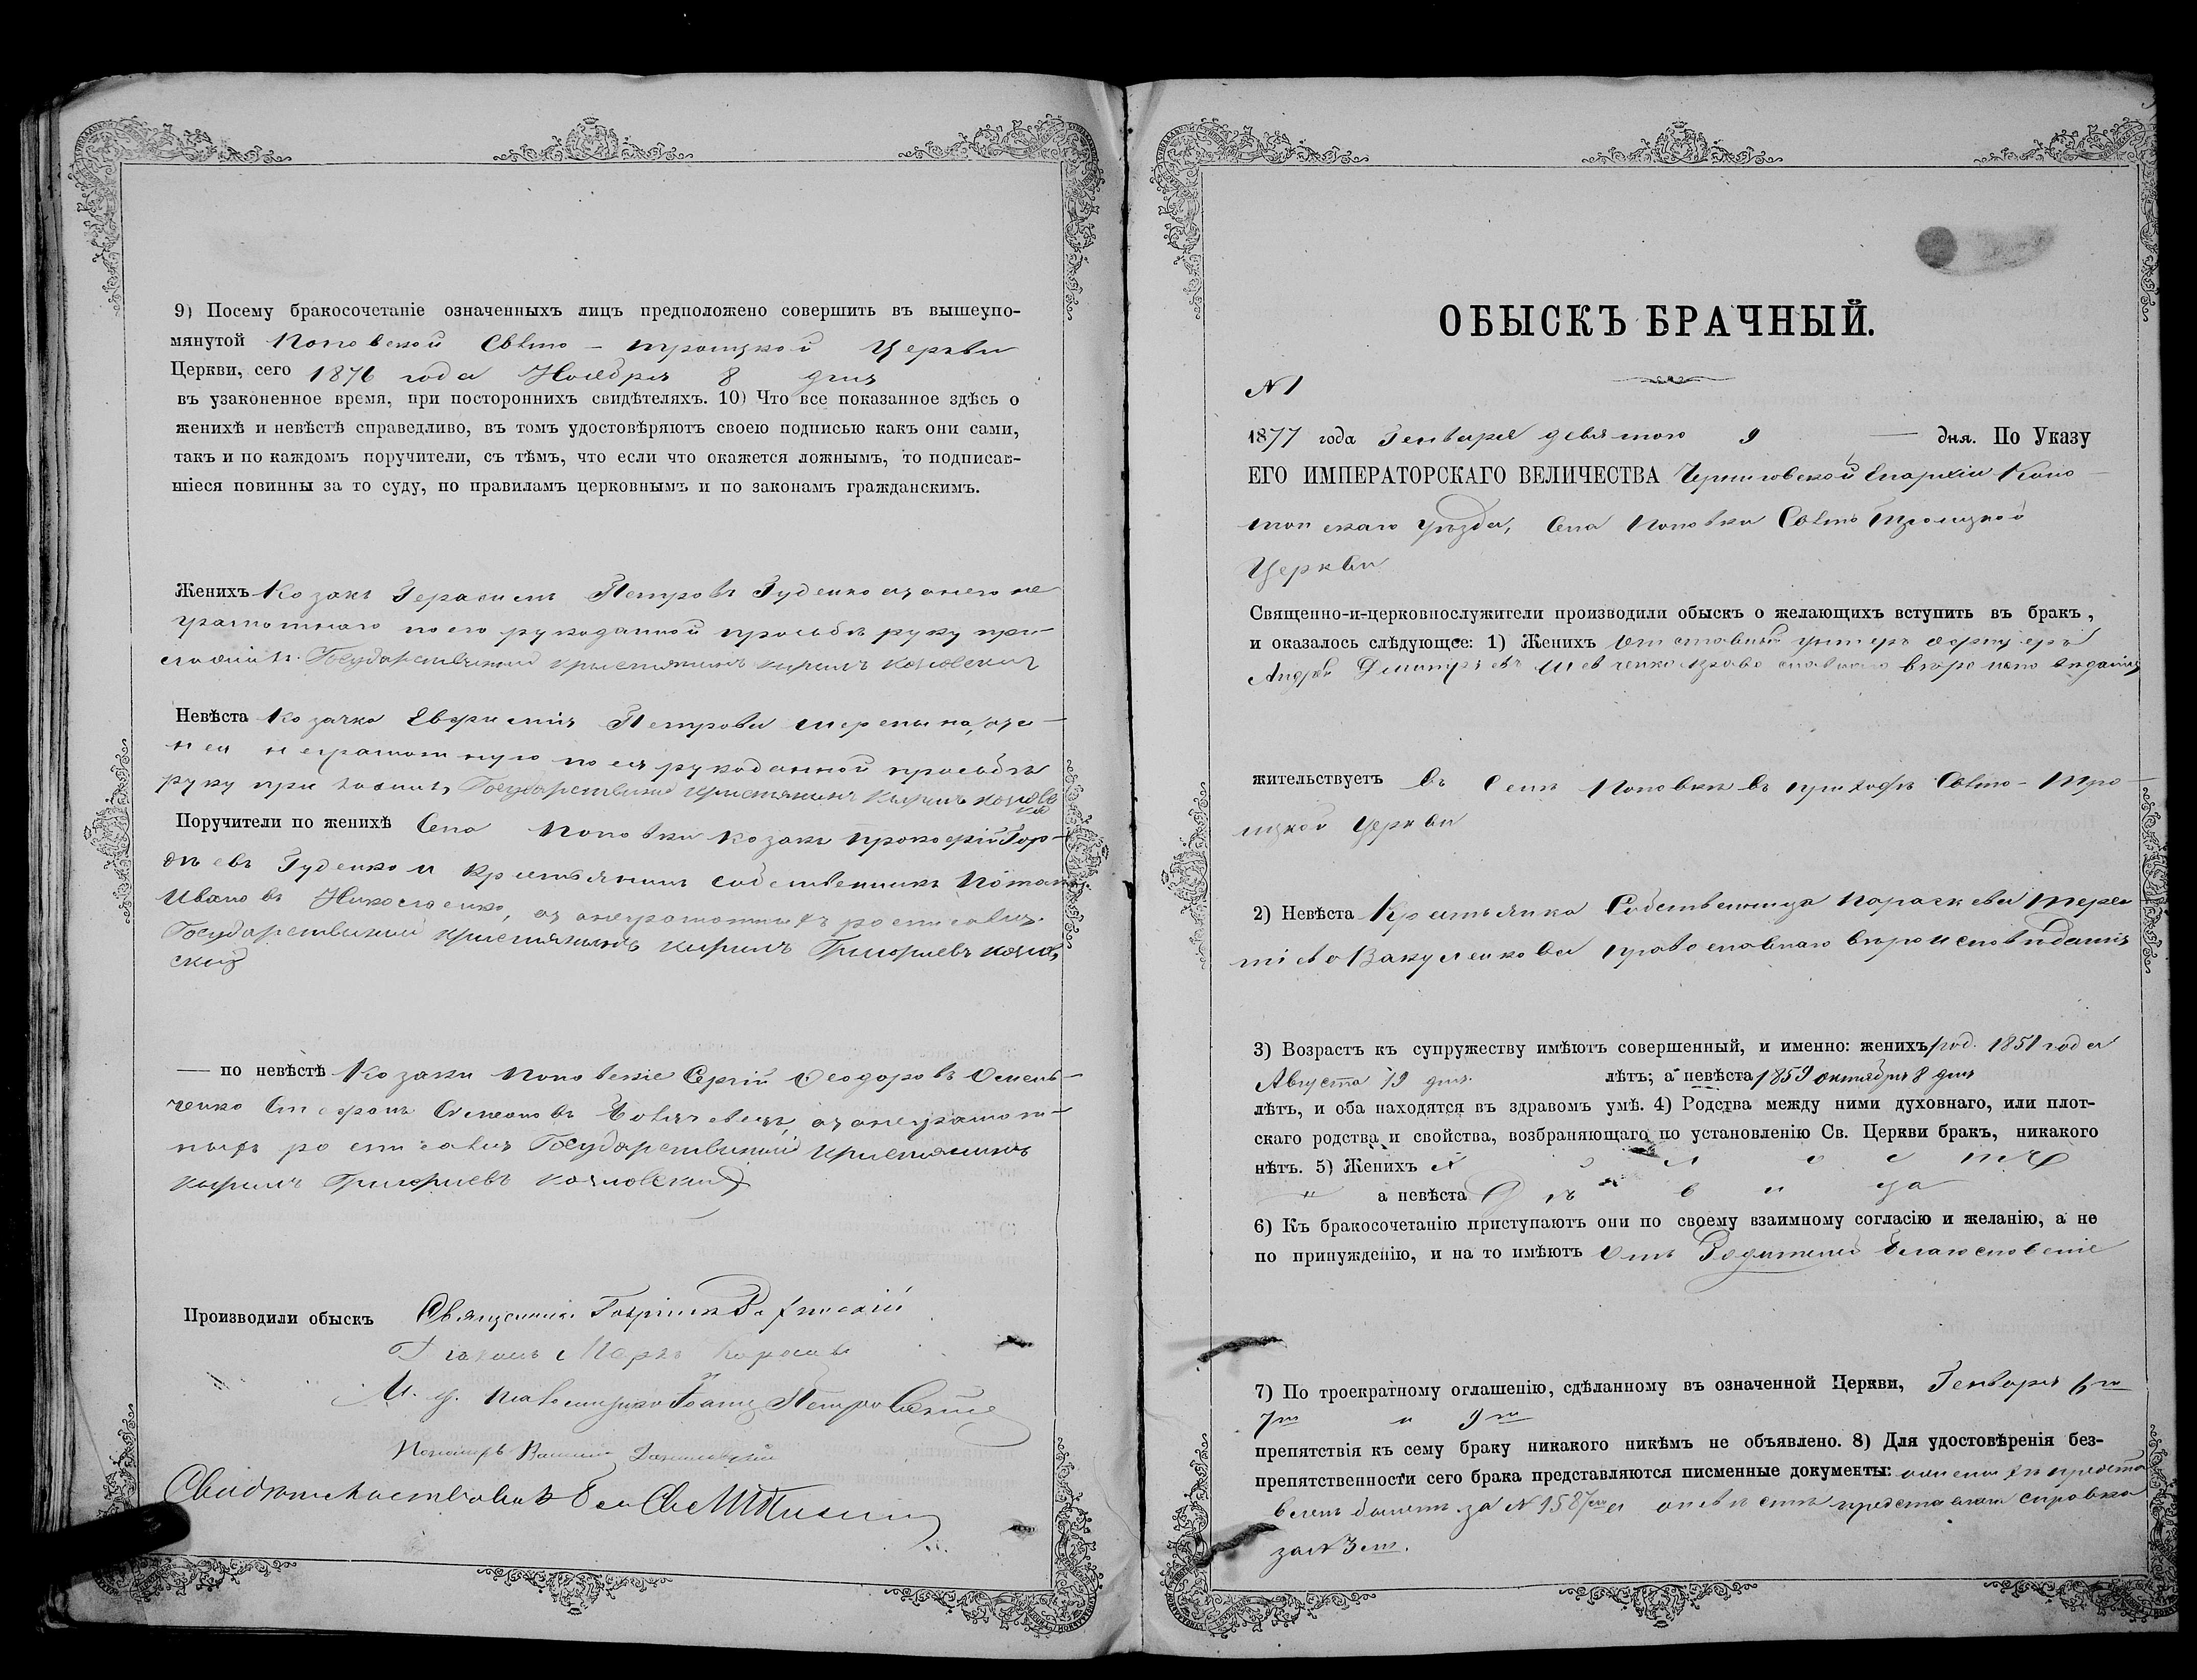 9) Посему бракосочетаніе означенныхъ лицъ предположено совершить въ вышеупо-
мянутой Поповской Свѣто-троицкой Церкви
Церкви, сего 1876 года Ноября 8 дня
въ узаконенное время, при постороннихъ свидѣтеляхъ. 10) Что все показанное здѣсь о
женихѣ и невѣстѣ справедливо, въ томъ удостовѣряютъ своею подписью какъ они сами,
такъ и по каждомъ поручители, съ тѣмъ, что если что окажется ложнымъ, то подписав-
шіеся повинны за то суду, по правиламъ церковнымъ и по законамъ гражданскимъ.
Женихъ Козакъ Герасимъ Петровъ Гуденко а за него не
грамотнаго по его рукоданной прозьбѣ руку при-
ложилъ Государственный крестьянинъ Кирилъ Козловский
Невѣста Козачка Евфимія Петрова а за
нея неграмотную по ея рукоданной прозьбѣ
руку приложилъ, Государственный крестьянинъ Кирилъ Козловс
кій
Поручители по женихѣ Села Поповки козакъ Прокофій Гор-
дѣевъ Гуденко и Крестьянинъ собственникъ Потапъ
Ивановъ Николаенко, а за неграмотныхъ росписался
Государственный крестьянинъ Кирилъ Григорьевъ Козлов
ский
— по невѣстѣ Козаки Поповскіе Сергій Ѳеодоровъ Омель-
ченко Стефанъ Симоновъ а за неграмот-
ныхъ росписался Государственный крестьянинъ
Кирилъ Григорьевъ Козловский
Производили обыскъ Священникъ Гавріилъ
Діаконъ Маркъ
И. д. псаломщика Іоаннъ Петровскій
Пономарь Василій
ОБЫСКЪ БРАЧНЫЙ.
N 1
1877 года Генваря девятого 9 — дня. По Указу
ЕГО ИМПЕРАТОРСКАГО ВЕЛИЧЕСТВА Черниговской Епархіи Коно-
топскаго уѣзда, Села Поповки Свѣто Троицкой
Церкви
Священно-и-церковнослужители производили обыскъ о желающихъ вступить въ бракъ,
и оказалось слѣдующее: 1) Женихъ Отставный унтеръ офицеръ
Андрей Димитріевъ Шевченко православнаго вѣроисповѣданія
жительствуетъ въ Селѣ Поповкѣ въ приходѣ Свѣто-Тро-
ицкой Церкви
2) Невѣста Крестьянка Собственница Параскева Терен
тіева Вакуленкова православнаго вѣроисповѣданія
3) Возрастъ къ супружеству имѣютъ совершенный, и именно: женихъ род. 1851 года
Августа 19 дня. лѣтъ; а невѣста 1859 октября 8 дня
лѣтъ, и оба находятся въ здравомъ умѣ. 4) Родства между ними духовнаго, или плот-
скаго родства и свойства, возбраняющаго по установленію Св. Церкви бракъ, никакого
нѣтъ. 5) Женихъ холостъ
" а невѣста Дѣвица
6) Къ бракосочетанію приступаютъ они по своему взаимному согласію и желанію, а не
по принужденію, и на то имѣютъ Отъ Родителей благословеніе
7) По троекратному оглашенію, сдѣланному въ означенной Церкви, Генваря 6го
7го и 9го
препятствія къ сему браку никакого никѣмъ не объявлено. 8) Для удостовѣренія без-
препятственности сего брака представляются писменные документы: о женихѣ предста
вленъ билетъ за N 1587 а о невѣстѣ представлена справка
за N 3